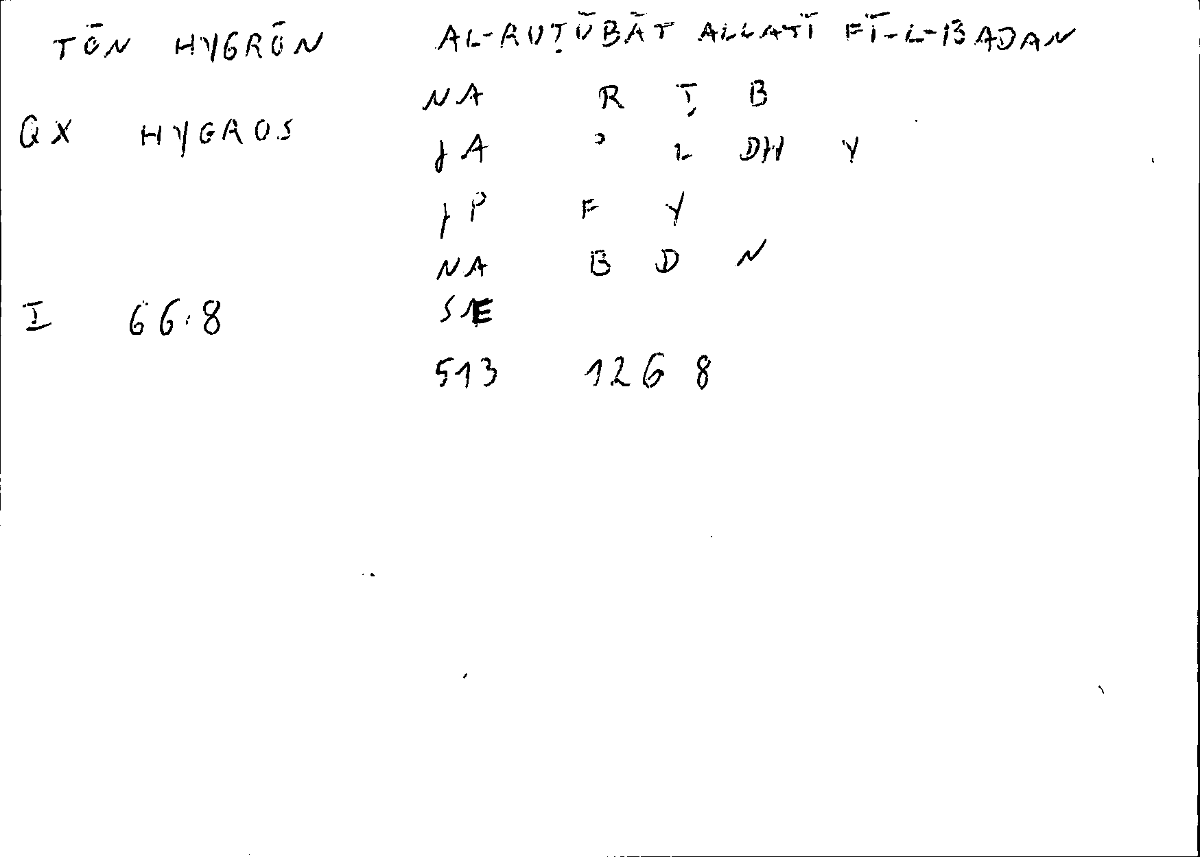 TŌN HYGRŌN AL-RUṬŪBĀT ALLATĪ FĪ-L-BADAN
NA R Ṭ B
QX HYGROS
jA ʾ L DH Y
jP F Y
NA B D N
I 66.8 SNE
513 126 8